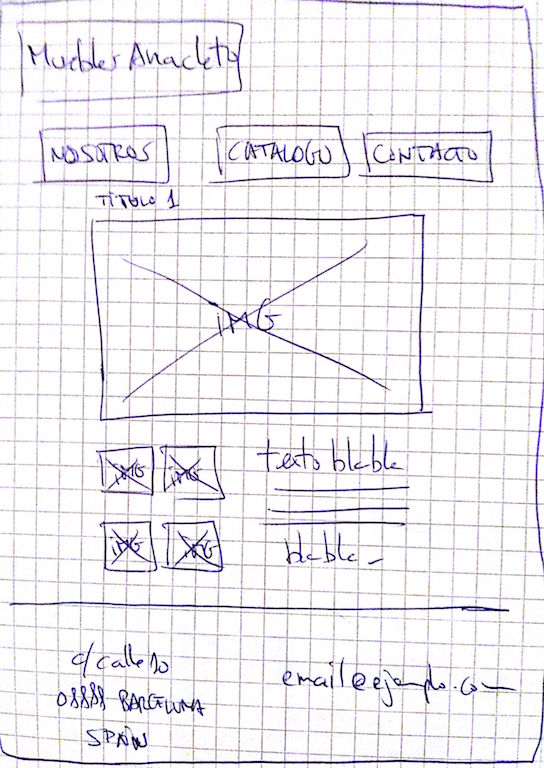 Muebles Anacleto
NOSOTROS CATALOGO CONTACTO
TÍTULO 1
IMG
IMG IMG texto blabla
IMG IMG blabla_
c/ calle 10
08888 BARCELONA
SPAIN
email@ejemplo.com